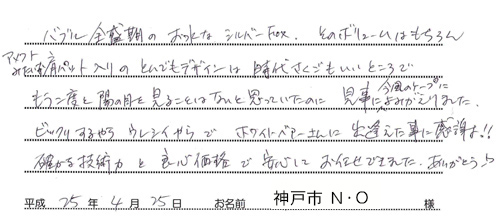 バブル全盛期のおっきなシルバーfox。そのボリュームはもちろん
アメフトみたいな肩パット入りのとんでもデザインは時代さくごもいいところで
もう二度と陽の目を見ることはないと思っていたのに 見事に今風のケープによみがえりました。
ビックリするやらウレシイやらで ホワイトベアーさんに出逢えた事に感謝!!
確かな技術力と良心価格で安心してお任せできました。ありがとう
平成 25年 4月 25日 お名前 神戸市 N・O 様